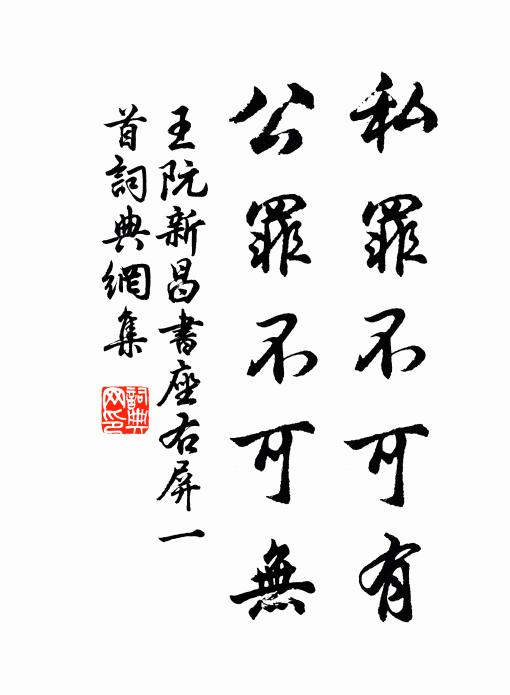 私罪不可有
公罪不可無
王阮新昌書座右屏一
首詞典網集
詞典
网印